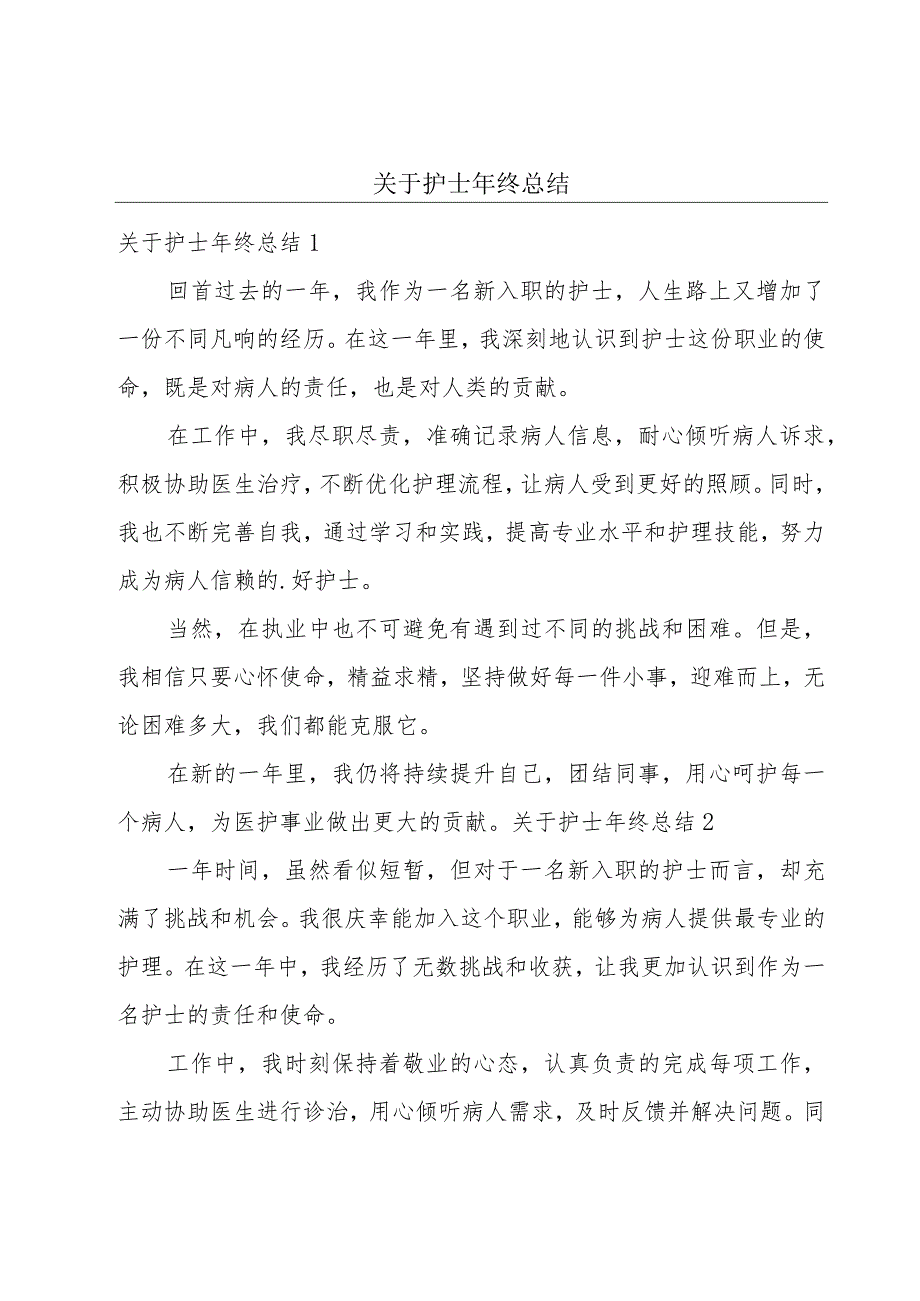 关于护士年终总结
关于护士年终总结1
回首过去的一年，我作为一名新入职的护士，人生路上又增加了
一份不同凡响的经历。在这一年里，我深刻地认识到护士这份职业的使
命，既是对病人的责任，也是对人类的贡献。
在工作中，我尽职尽责，准确记录病人信息，耐心倾听病人诉求，
积极协助医生治疗，不断优化护理流程，让病人受到更好的照顾。同时，
我也不断完善自我，通过学习和实践，提高专业水平和护理技能，努力
成为病人信赖的.好护士。
当然，在执业中也不可避免有遇到过不同的挑战和困难。但是，
我相信只要心怀使命，精益求精，坚持做好每一件小事，迎难而上，无
论困难多大，我们都能克服它。
在新的一年里，我仍将持续提升自己，团结同事，用心呵护每一
个病人，为医护事业做出更大的贡献。关于护士年终总结2
一年时间，虽然看似短暂，但对于一名新入职的护士而言，却充
满了挑战和机会。我很庆幸能加入这个职业，能够为病人提供最专业的
护理。在这一年中，我经历了无数挑战和收获，让我更加认识到作为一
名护士的责任和使命。
工作中，我时刻保持着敬业的心态，认真负责的完成每项工作，
主动协助医生进行诊治，用心倾听病人需求，及时反馈并解决问题。同